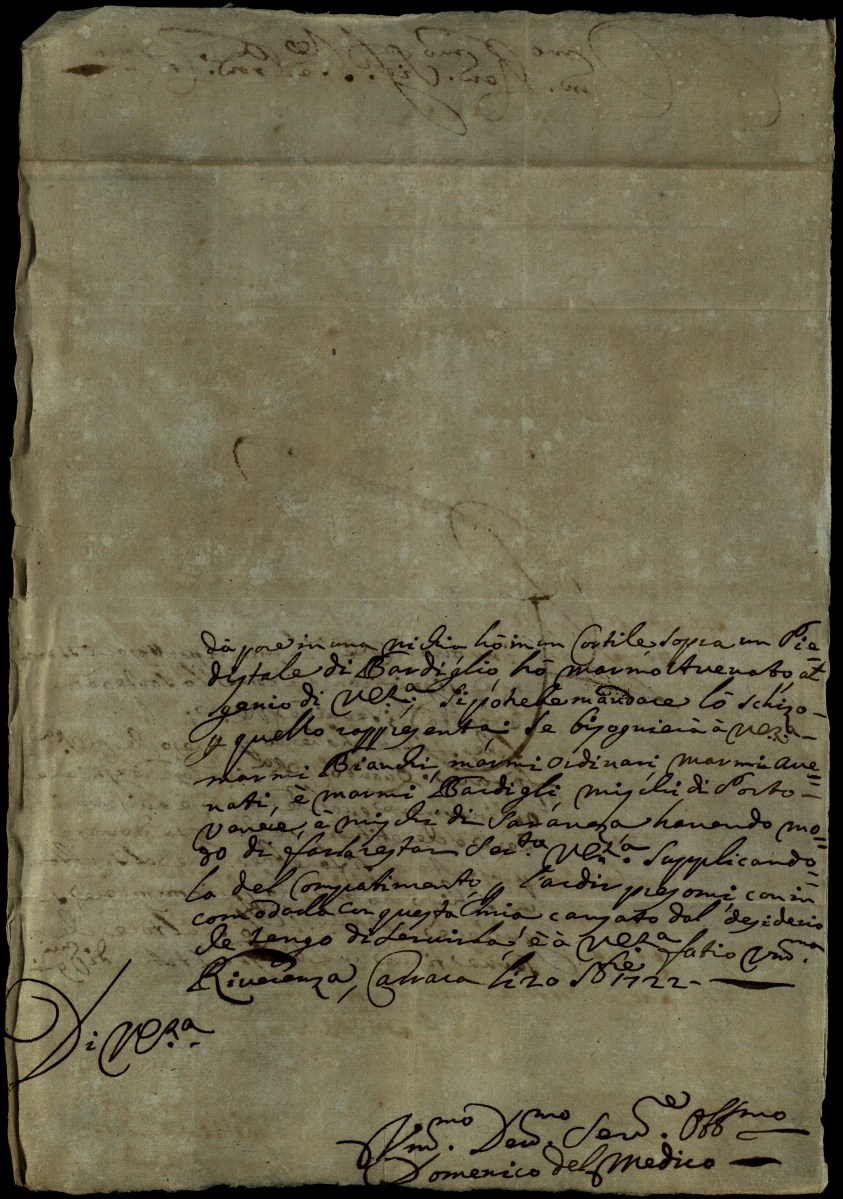 da pore in una nichia hò in un Cortile sopra un Pie=
distale di Bardiglio, hò marmo Auenato, al
genio di V.E.za, si potrebe mandare lò schizo
p quello rappresenta: se bisognierà à V.E.za
marmi Bianchi, marmi ordinari, marmi Aue=
nati, è marmi Bardigli mischi di Porto
Venere, è mischi di Saraueza hauendo mo=
do di farla restar Seru.ta V.E.za. Supplicando=
la del Compatimento p l'ardir presomi, con in
comodarla con questa mia causato dal desiderio
che tengo di seruirla, è à V.E.za fatio Vm.ma
Riuerenza, Carrara li 20 8bre 1722
Di V.E.za
Vm.mo Deu.mo Seru.e Obb.mo
Domenico del Medico